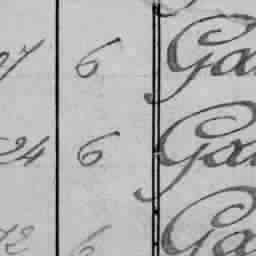 27 6 Ga
24 6 Ga
72 6 Ga